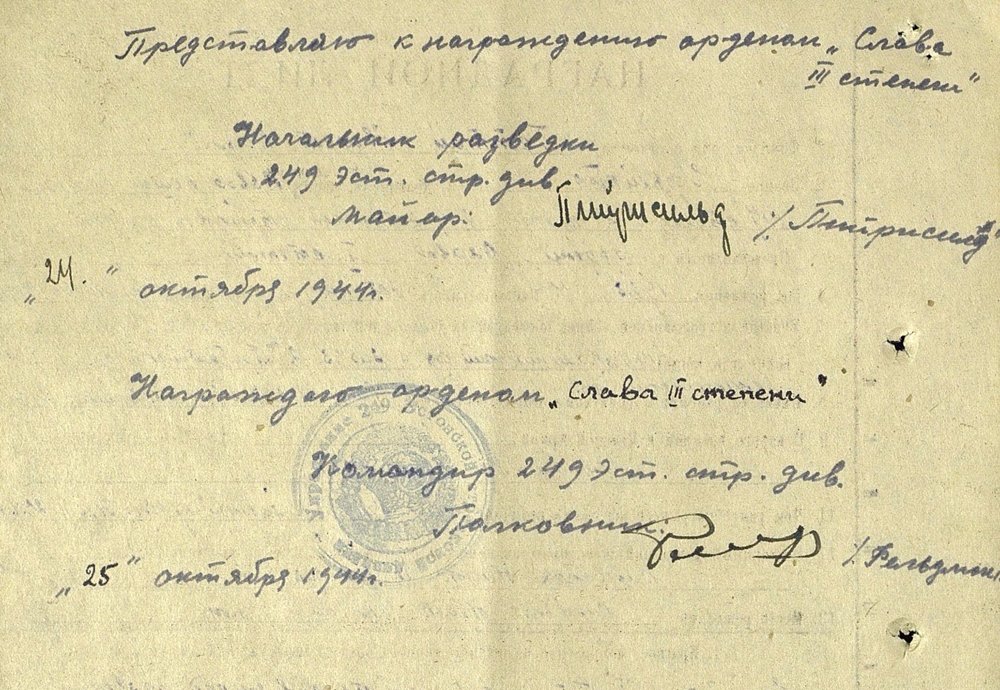 Представляю к награждению орденом „Слава
III степени"
Начальник разведки
249 Эст. стр. див.
Майор:
„24." октября 1944г.
Награждаю орденом „Слава III степени"
Командир 249 Эст. стр. див.
Полковник:
„25" октября 1944г.